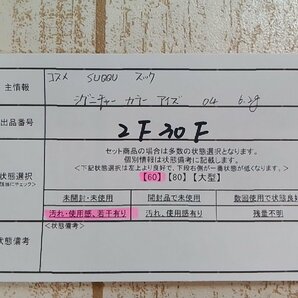 コスメ SUQQU スック
主情報 シグニチャー カラー アイズ 04 6.2g
出品番号 2F30F
セット商品の場合は多数の状態選択となります。
個別情報は状態備考に記載します。
<下記状態選択は左上より良好で、下段右側が一番状態が低くなります。>
状態選択
【60】【80】【大型】
未開封・未使用 開封品で未使用 数回使用で状態良好
汚れ・使用感、若干有り 汚れ、使用感有り 残量不明
<状態備考>
状態備考